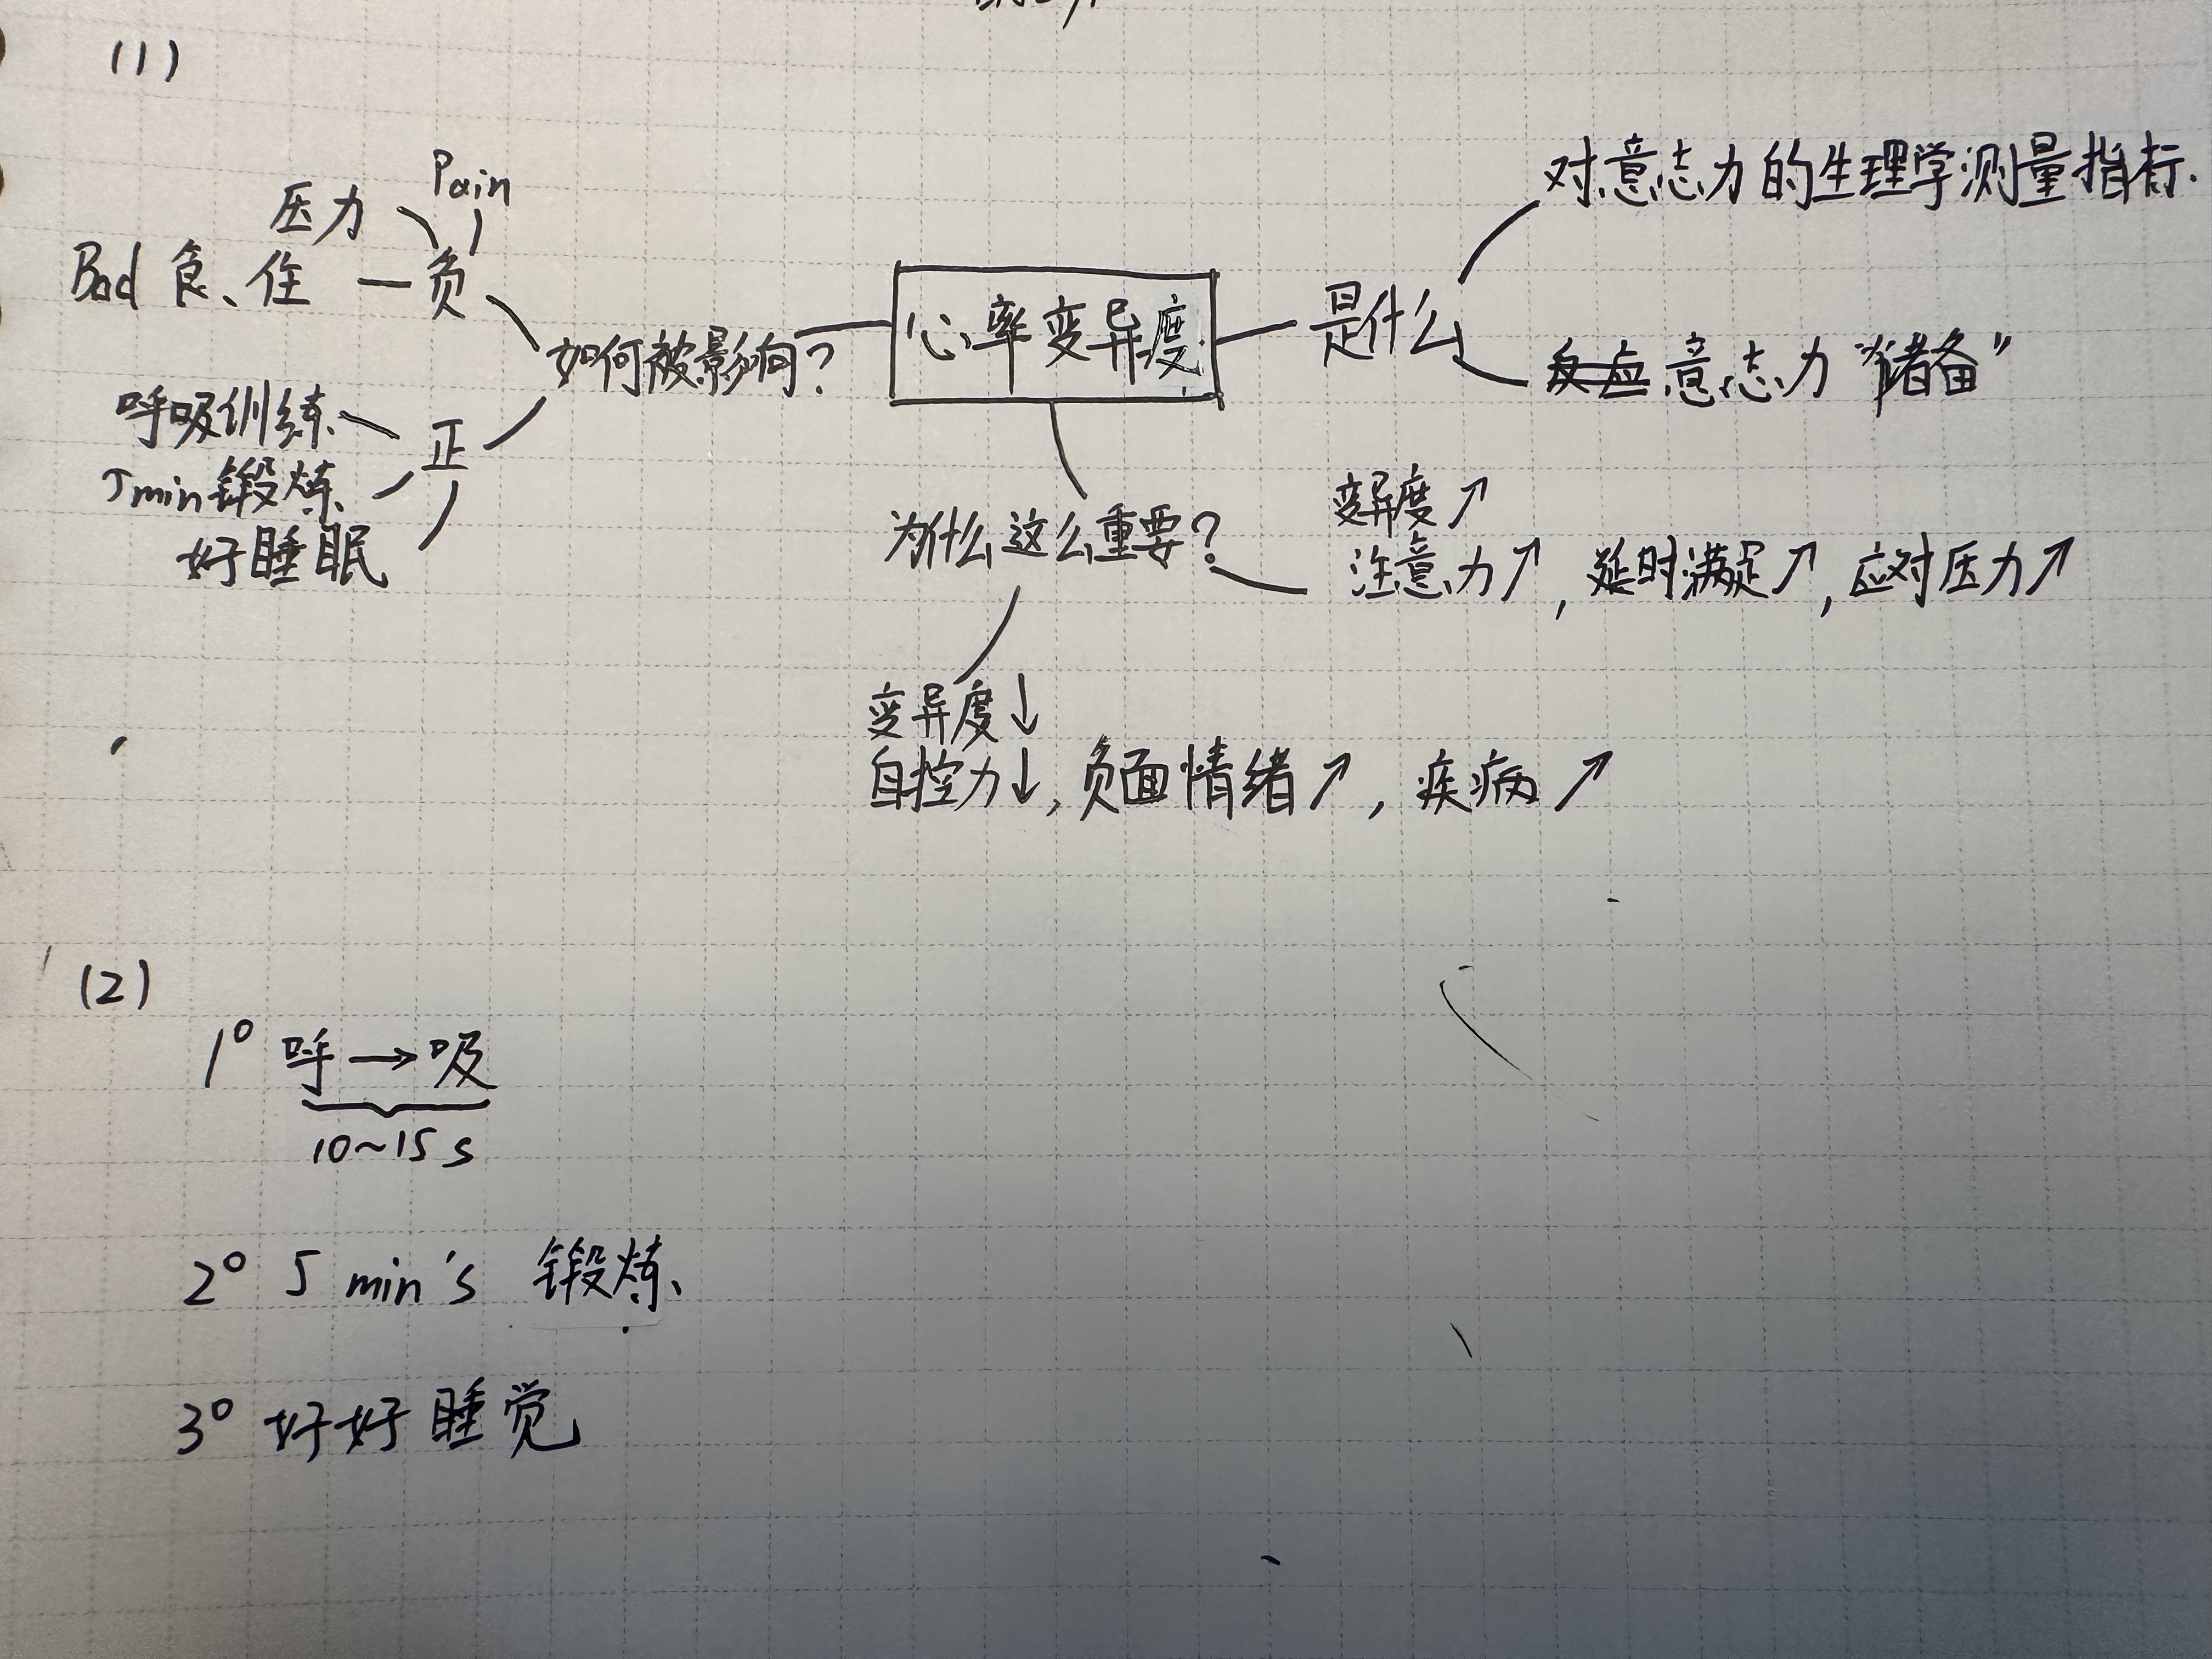 (1)
Pain
压力
Bad 食、住 — 负
如何被影响?
呼吸训练
正
5min锻炼
好睡眠
心率变异度
是什么
对意志力的生理学测量指标.
意志力“储备”
为什么这么重要?
变异度↗
注意力↗, 延时满足↗, 应对压力↗
变异度↓
自控力↓, 负面情绪↗, 疾病↗
(2)
1° 呼→吸
10~15 s
2° 5 min's 锻炼
3° 好好睡觉